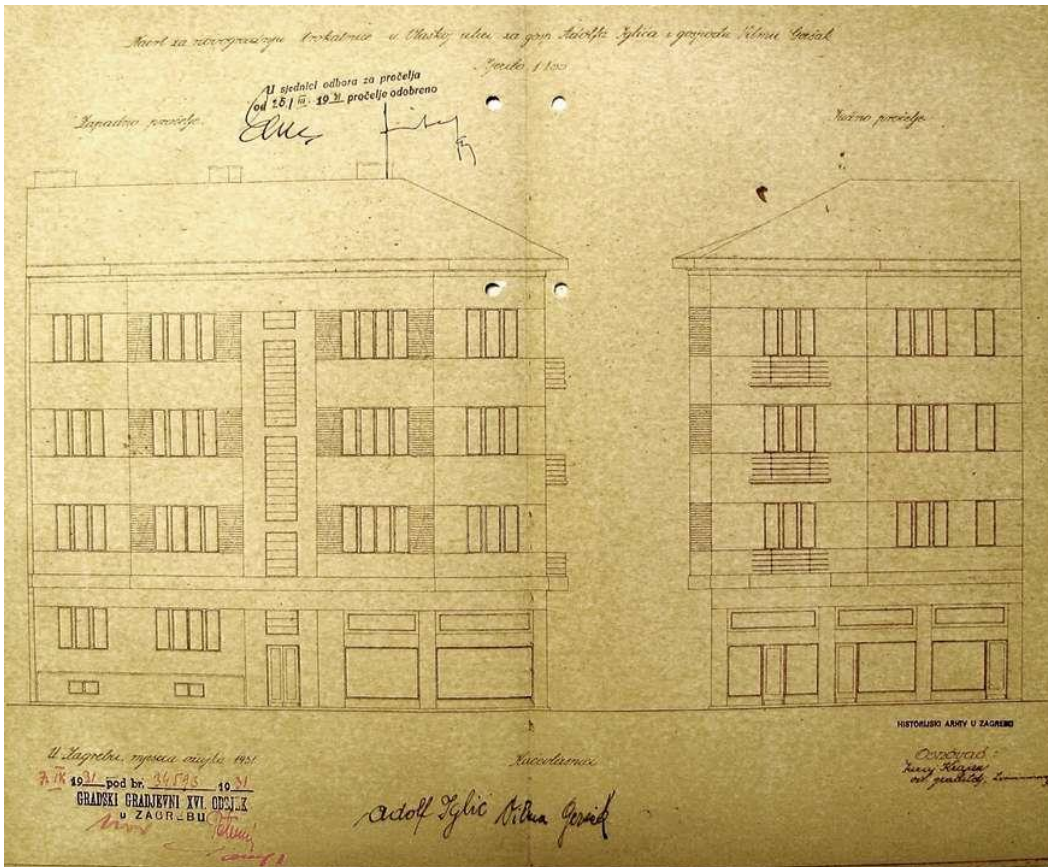 Nacrt za novogradnju trokatnice u Vlaškoj ulici za gosp. Adolfa Iglića i gospodu Vilmu Geršak
Mjerilo 1:100
U sjednici odbora za pročelja
od 1931 pročelje odobreno
Zapadno pročelje.
Južno pročelje.
HISTORIJSKI ARHIV U ZAGREBU
U Zagrebu, mjeseca ožujka 1931.
Osnovao:
Juraj Krajcer
ov. graditelj,
1931 pod br. 1931
GRADSKI GRADJEVNI XVI. ODSJEK
U ZAGREBU
Adolf Iglić Vilma Geršak